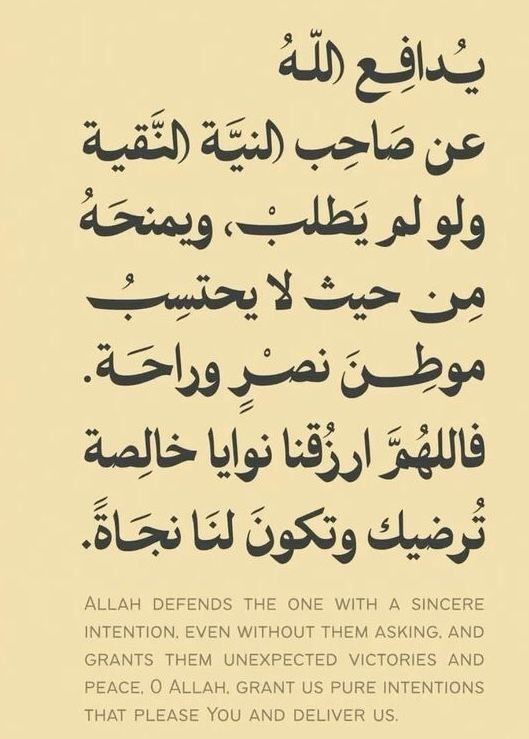 يُدافِع اللّهُ
عن صَاحِب النيَّة النَّقية
ولو لم يَطلبْ، ويمنحَهُ
مِن حيث لا يحتسِبُ
موطِنَ نصْرٍ وراحَة.
فاللهُمَّ ارزُقنا نوايا خالِصة
تُرضيك وتكونَ لنَا نجَاةً.
ALLAH DEFENDS THE ONE WITH A SINCERE
INTENTION, EVEN WITHOUT THEM ASKING, AND
GRANTS THEM UNEXPECTED VICTORIES AND
PEACE, O ALLAH, GRANT US PURE INTENTIONS
THAT PLEASE YOU AND DELIVER US.